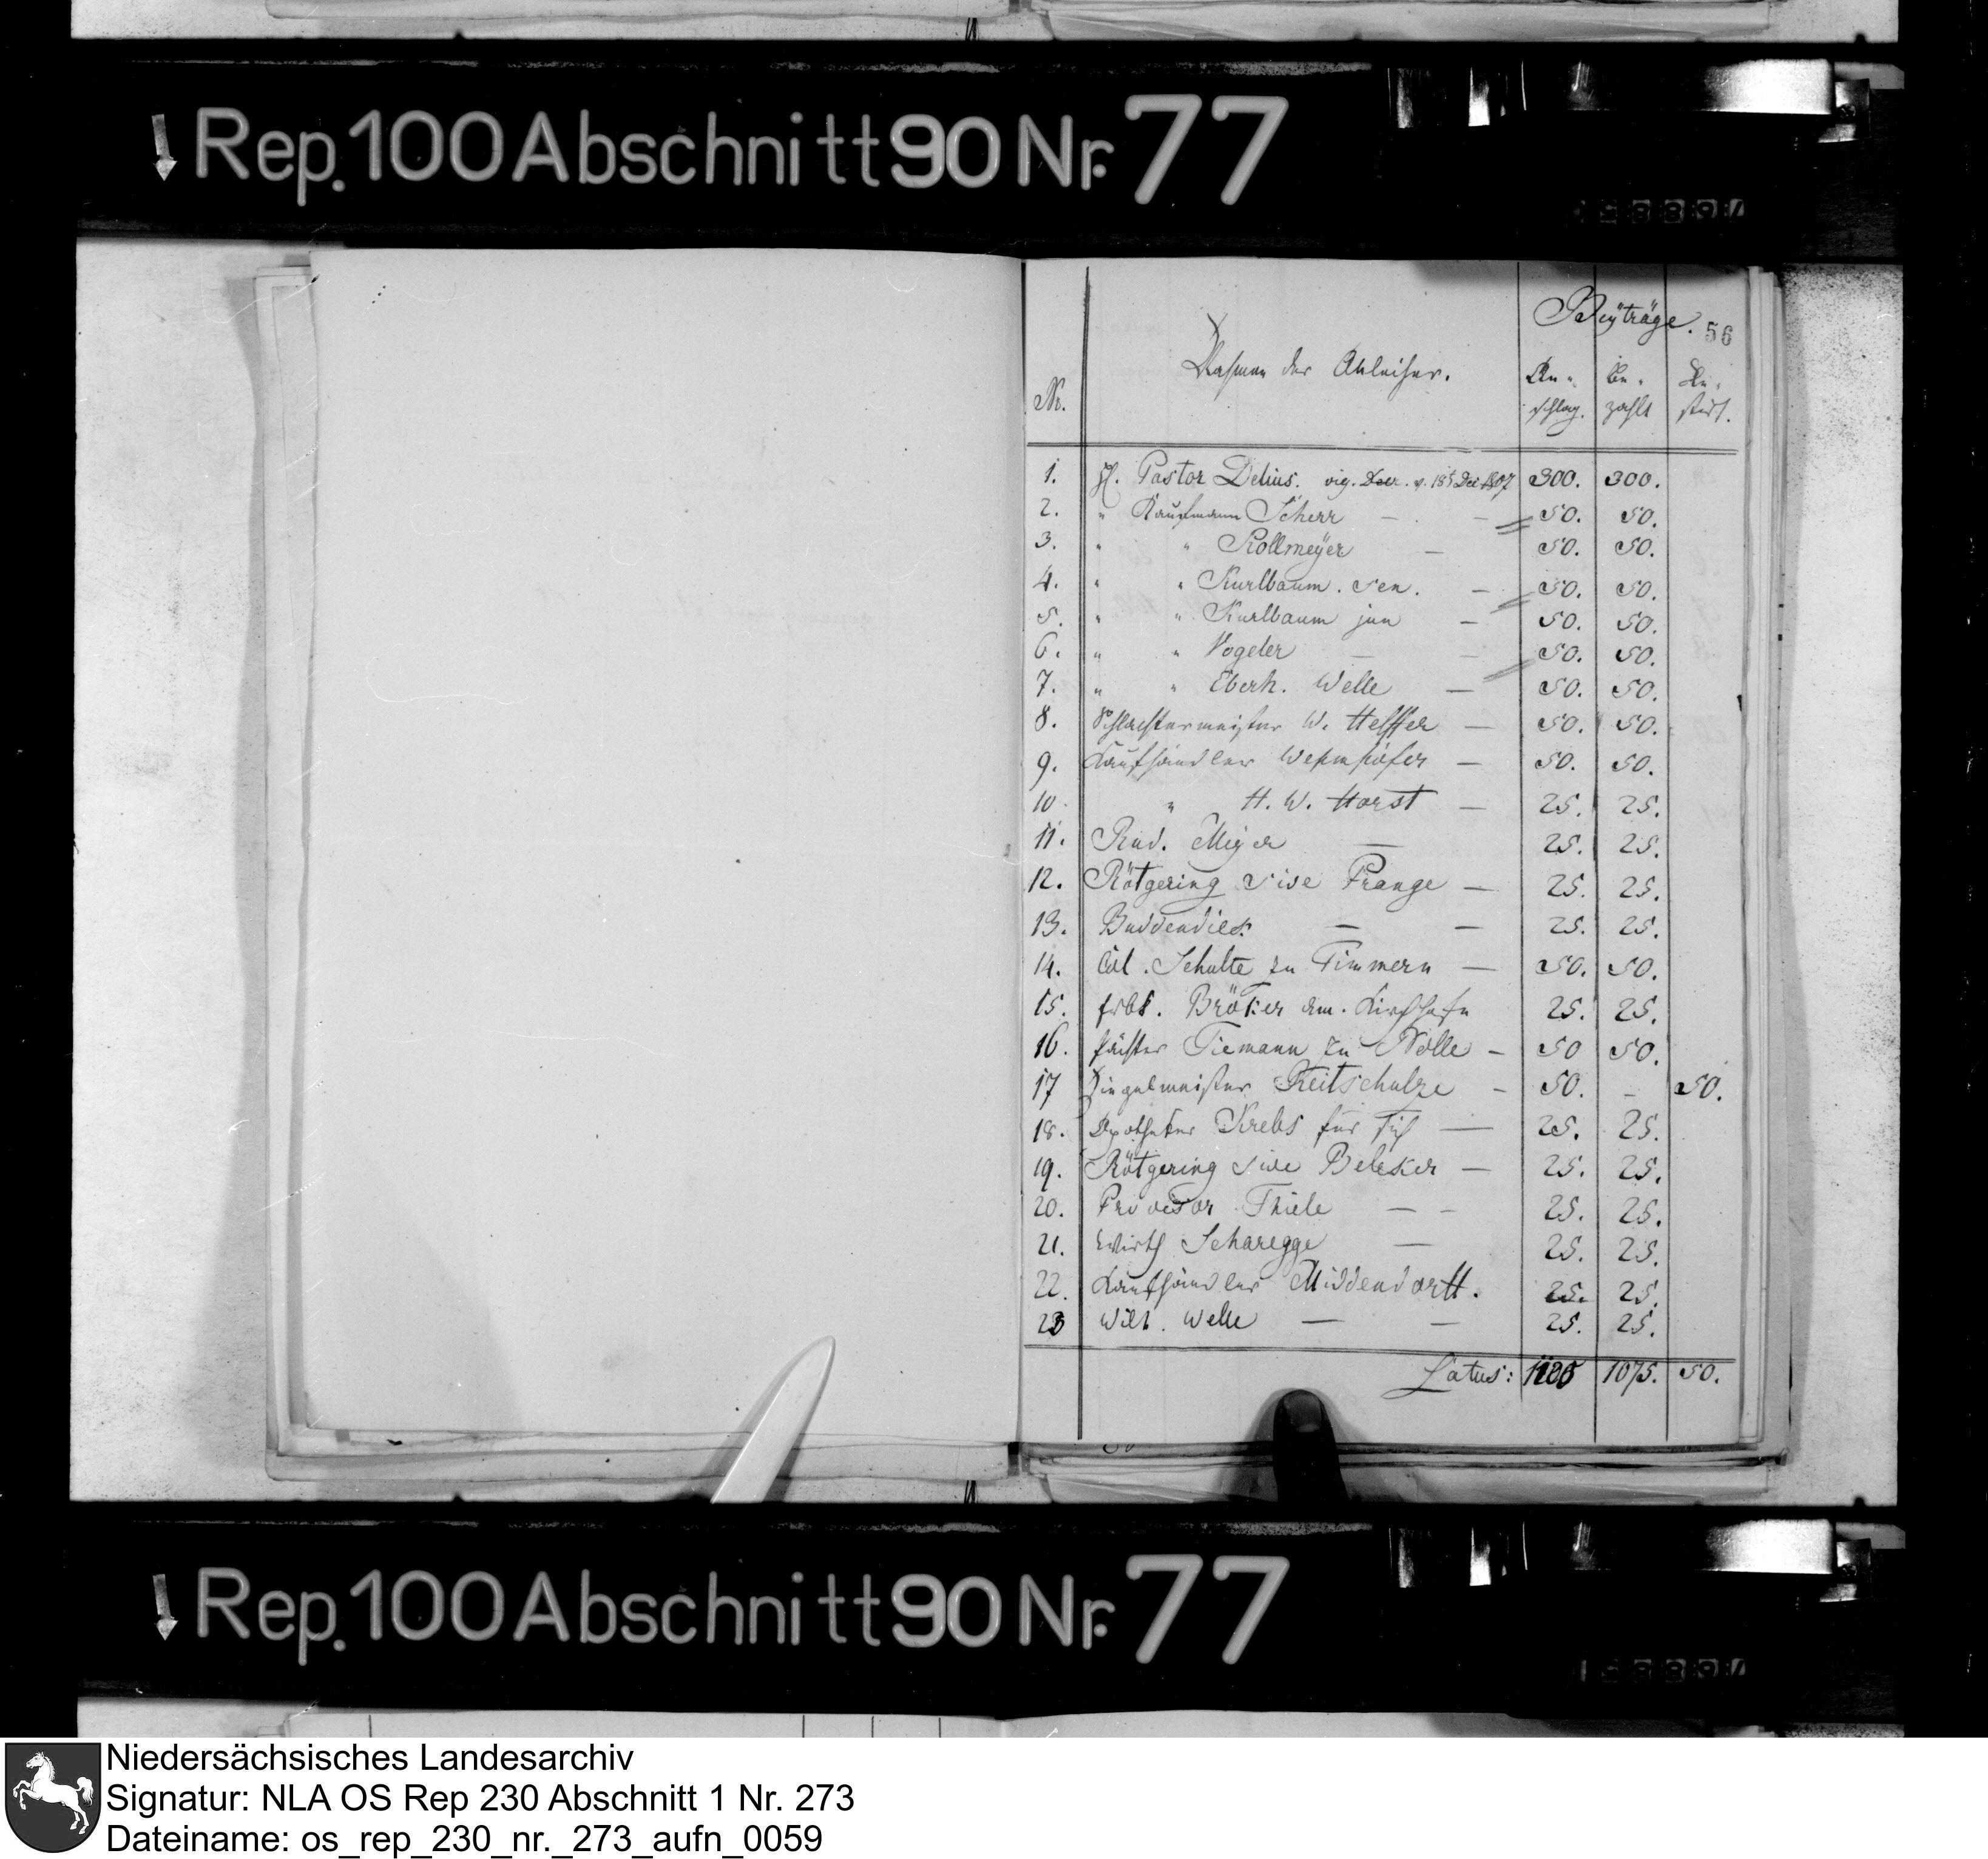 Rep. 100 Abschnitt 90 Nr. 77
Beÿträge. 56
Nr. Nahmen der Anleiher. An- schlag. Be- zahlt Re- stirt.
1. H. Pastor Delius. vig. Decr. v. 18t Dec 1807 300. 300.
2. " Kaufmann Scherr — — 50. 50.
3. " " Kollmeÿer — 50. 50.
4. " " Kurlbaum. sen. — 50. 50.
5. " " Kurlbaum jun — 50. 50.
6. " " Vogeler — — 50. 50.
7. " " Eberh. Welle — 50. 50.
8. Schlachtermeister W. Helffer — 50. 50.
9. Kaufhändler — 50. 50.
10. " H. W. Horst — 25. 25.
11. Rud. Meyer — 25. 25.
12. Rötgering sive Prange — 25. 25.
13. Buddendiek — — 25. 25.
14. Col. Schulte zu Timmern — 50. 50.
15. Bröker am Kirchhofe 25. 25.
16. Tiemann zu Nolle — 50 50.
17 Ziegelmeister Reitschulze — 50. – 50.
18. Apotheker Krebs für sich — 25. 25.
19. Rötgering sive Beleker — 25. 25.
20. Provisor Thiele — – 25. 25.
21. Wirth Scharegge — 25. 25.
22. Kaufhändler Middendorff. 25. 25.
23 Wilh. Welle — — 25. 25.
Latus: 1125 1075. 50.
Rep. 100 Abschnitt 90 Nr. 77
Niedersächsisches Landesarchiv
Signatur: NLA OS Rep 230 Abschnitt 1 Nr. 273
Dateiname: os_rep_230_nr._273_aufn_0059